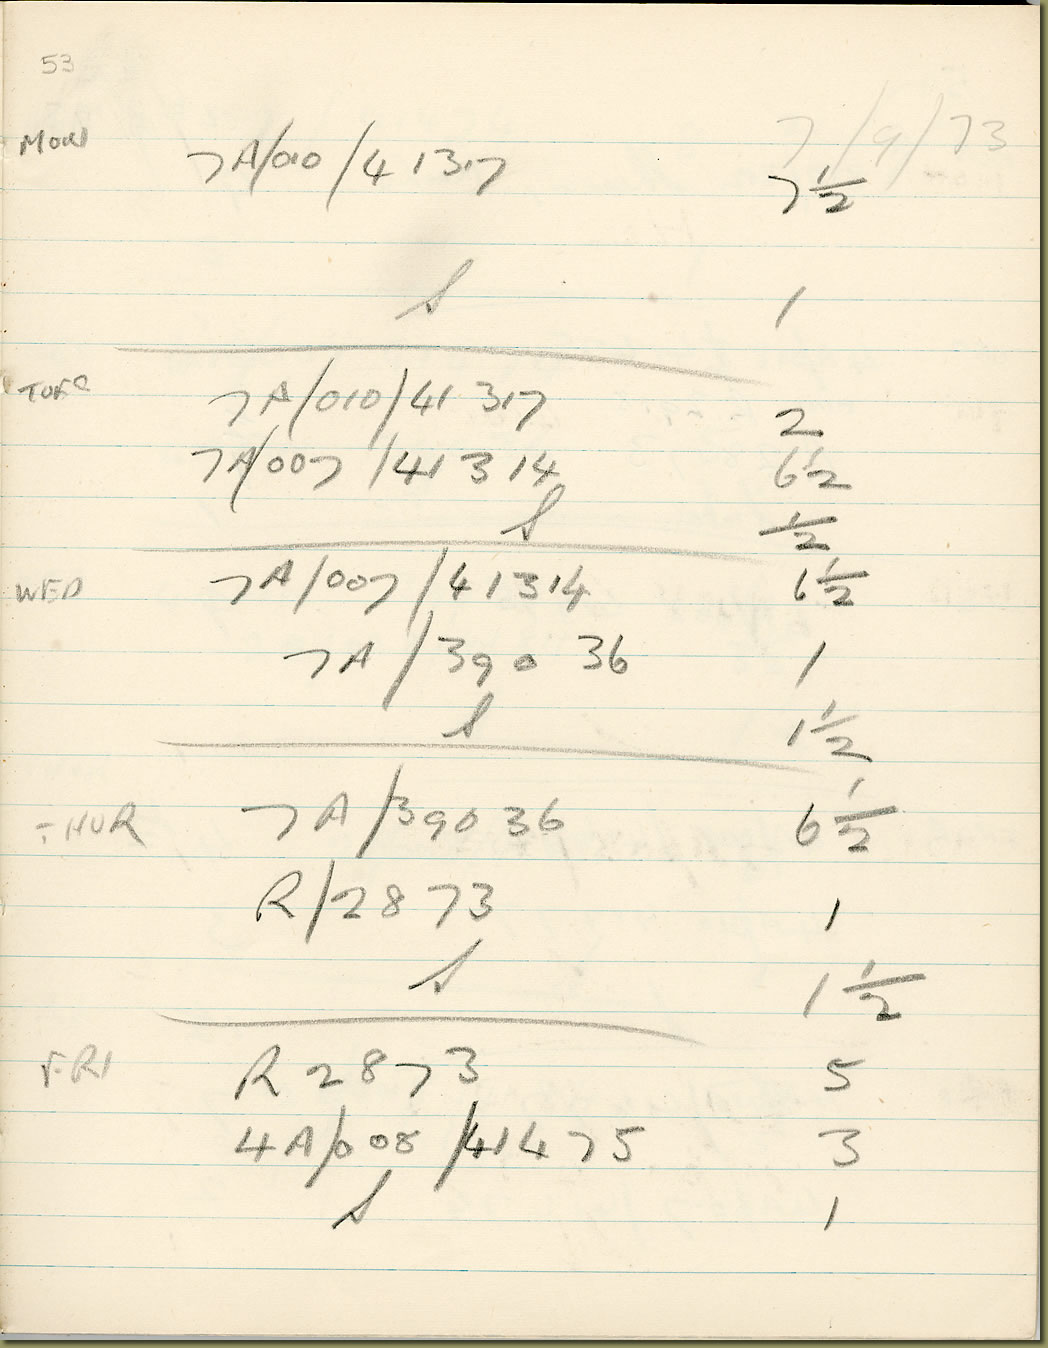 53
7/9/73
MON 7A/010/41317 7½
S 1
TUES 7A/010/41317 2
7A/007/41314 6½
S ½
WED 7A/007/41314 6½
7A/39036 1
S 1½
THUR 7A/39036 6½
R/2873 1
S 1½
FRI R2873 5
4A/008/41475 3
S 1